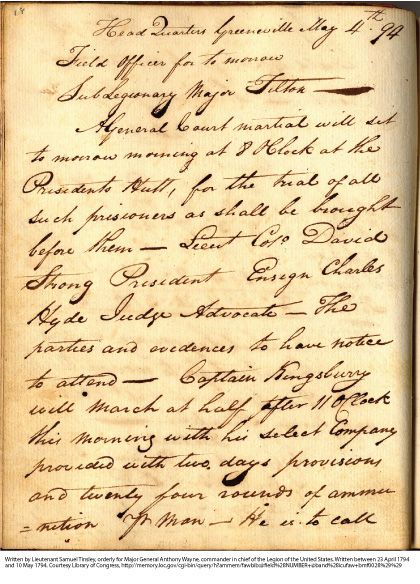 18
Head Quarters Greeneville May 4th 94
Field Officer for to morrow
SubLegionary Major Tilton —
A General Court martial will set
to morrow morning at 8 OClock at the
Presidents Hutt, for the trial of all
such prisioners as shall be brought
before them — Lieut Colo. David
Strong President Ensign Charles
Hyde Judge Advocate — The
parties and evidences to have notice
to attend — Captain Kingsburry
will March at half after 11 OClock
this morning with his select Company
provided with two days provisions
and twenty four rounds of ammu
=nition Pr Man — He is to call
Written by Lieutenant Samuel Tinsley, orderly for Major General Anthony Wayne, commander in chief of the Legion of the United States. Written between 23 April 1794
and 10 May 1794. Courtesy Library of Congress, http://memory.loc.gov/cgi-bin/query/h?ammem/fawbib:@field%28NUMBER+@band%28lcufaw+bmf0028%29%29